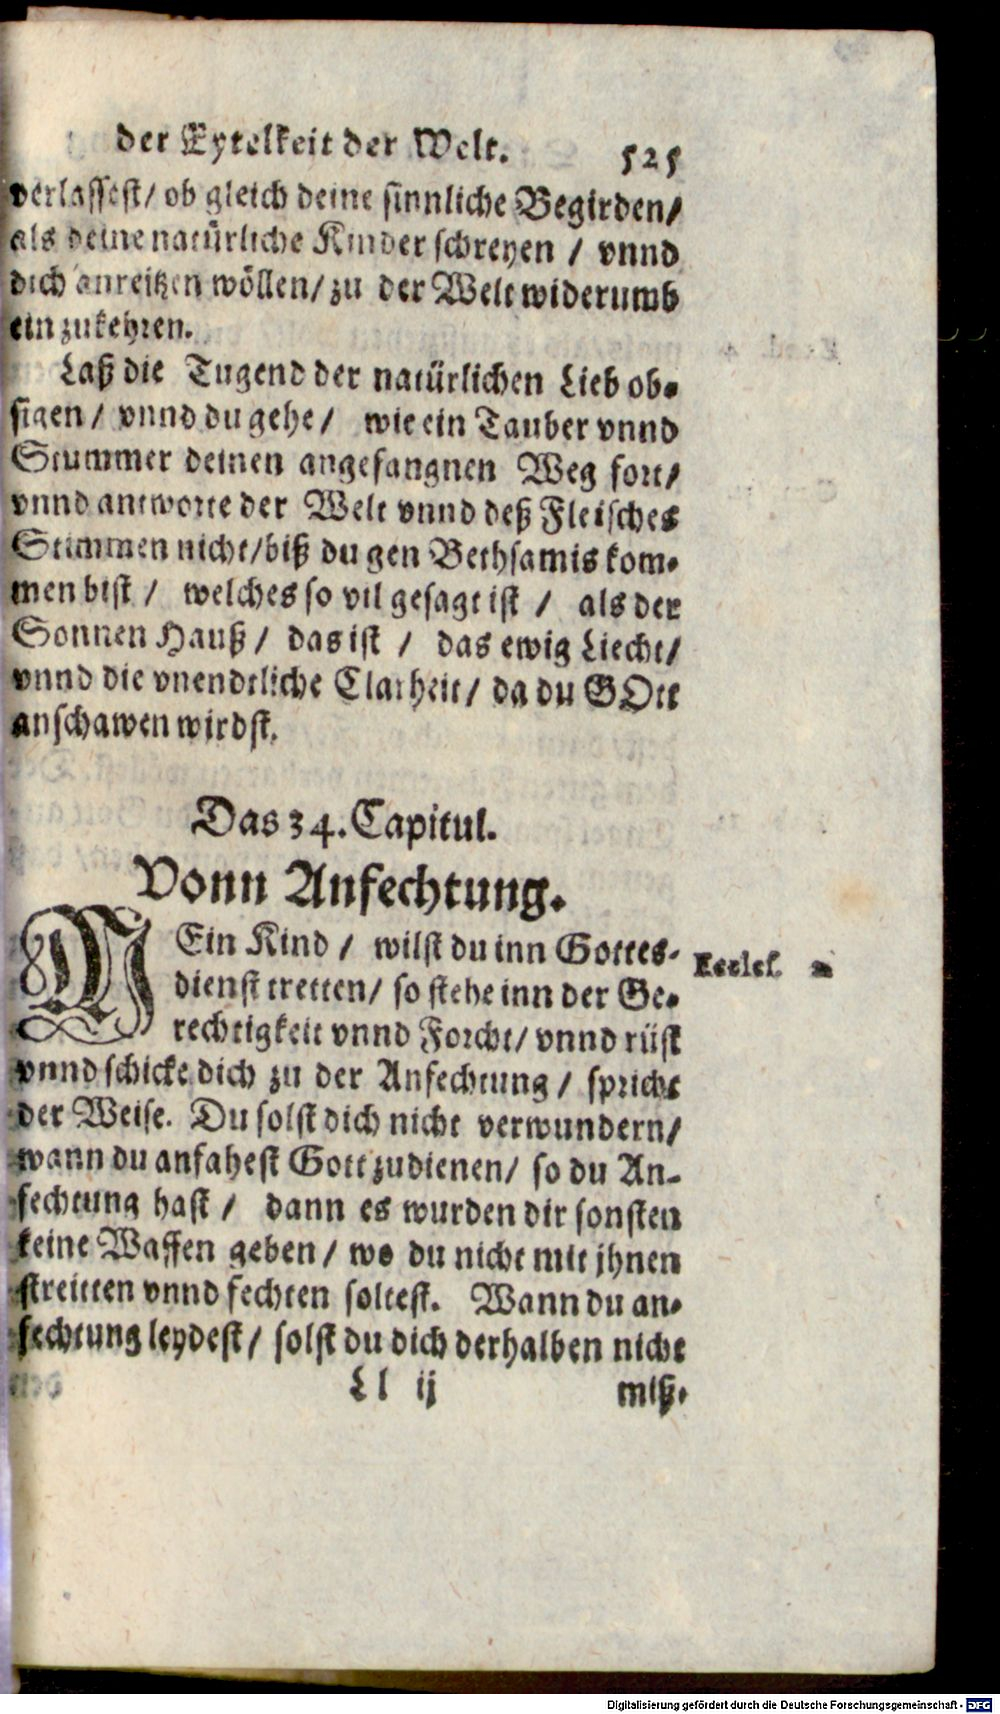 der Eytelkeit der Welt. 525
verlassest/ ob gleich deine sinnliche Begirden/
als deine natürliche Kinder schreyen / vnnd
dich anreitzen wöllen/ zu der Welt widerumb
ein zukehren.
Laß die Tugend der natürlichen Lieb ob-
sigen / vnnd du gehe / wie ein Tauber vnnd
Stummer deinen angefangnen Weg fort/
vnnd antworte der Welt vnnd deß Fleisches
Stimmen nicht/ biß du gen Bethsamis kom-
men bist / welches so vil gesagt ist / als der
Sonnen Hauß / das ist / das ewig Liecht/
vnnd die vnendtliche Clarheit / da du GOtt
anschawen wirdst.
Das 34. Capitul.
Vonn Anfechtung.
MEin Kind / wilst du inn Gottes-
dienst tretten/ so stehe inn der Ge-
rechtigkeit vnnd Forcht/ vnnd rüst
vnnd schicke dich zu der Anfechtung / spricht
der Weise. Du solst dich nicht verwundern/
wann du anfahest Gott zudienen/ so du An-
fechtung hast / dann es wurden dir sonsten
keine Waffen geben / wo du nicht mit jhnen
streitten vnnd fechten soltest. Wann du an-
fechtung leydest / solst du dich derhalben nicht
Ll ij miß-
Eccles. 2
Digitalisierung gefördert durch die Deutsche Forschungsgemeinschaft - DFG